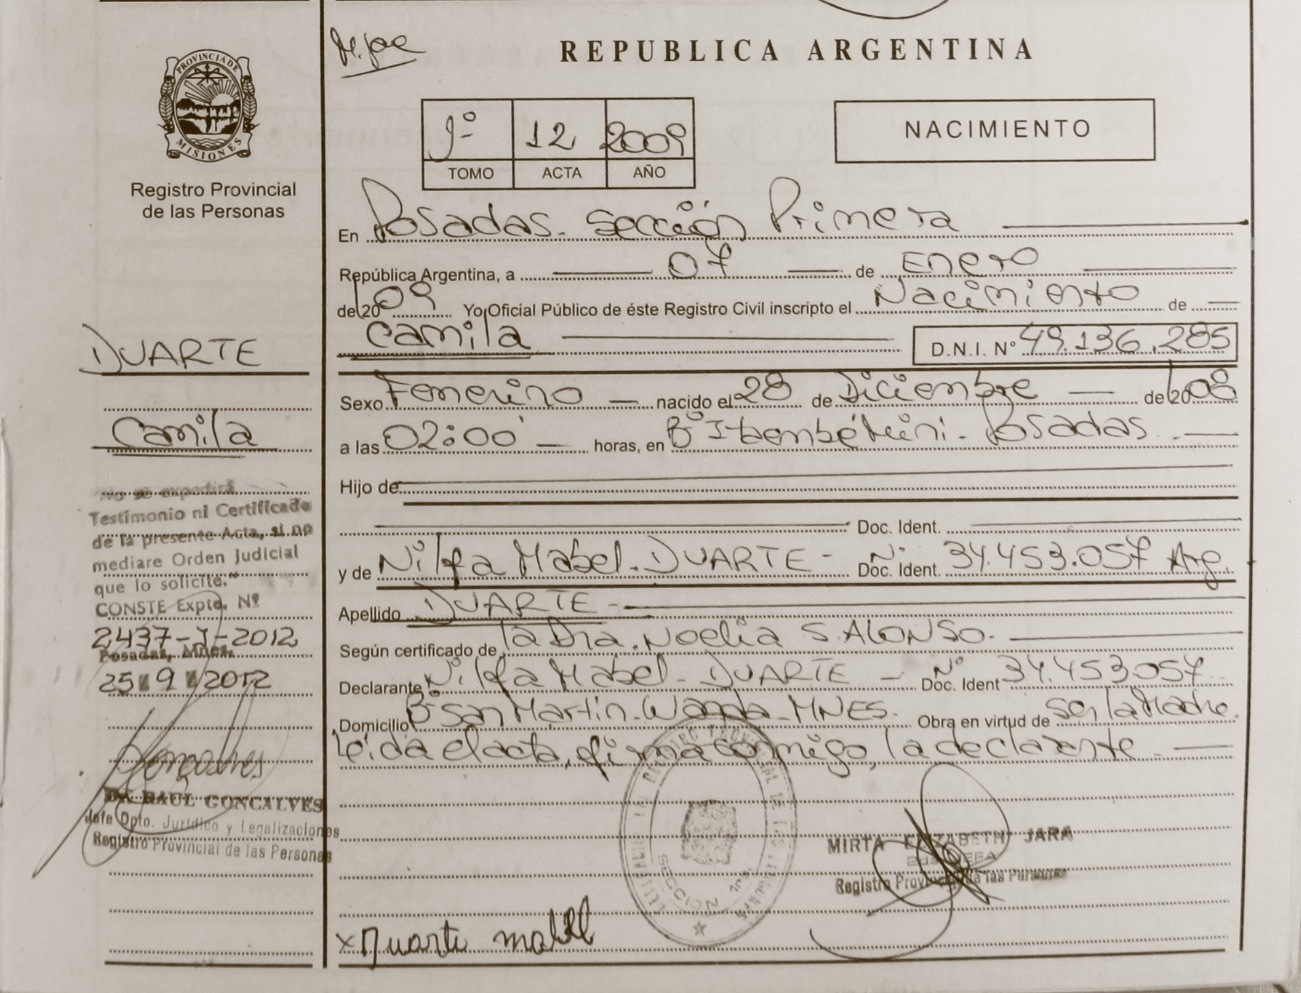 REPUBLICA ARGENTINA
PROVINCIA DE
MISIONES
Registro Provincial
de las Personas
1º 12 2009
TOMO ACTA AÑO
NACIMIENTO
En Posadas. Sección Primera
República Argentina, a 07 de Enero
de 20 09 Yo Oficial Público de éste Registro Civil inscripto el Nacimiento de
Camila D.N.I. Nº 49.136.285
Sexo Femenino nacido el 28 de Diciembre de 20 08
a las 02:00 horas, en Bº Itaembé Mini. Posadas
Hijo de
Doc. Ident.
y de Nilfa Mabel DUARTE Nº Doc. Ident. 34.453.057 Arg.
Apellido DUARTE
Según certificado de la Dra. Noelia S. ALONSO.
Declarante Nilfa Mabel DUARTE Nº Doc. Ident 34.453.057
Domicilio Bº San Martin - Wanda - MNES. Obra en virtud de ser la Madre.
Leida el acta, firma conmigo, la declarante.
DUARTE
Camila
No se expedirá
Testimonio ni Certificado
de la presente Acta, si no
mediare Orden Judicial
que lo solicite."
CONSTE Expte. Nº
2437-J-2012
Posadas, Mnes.
25 9 2012
Goncalves
Dr. RAUL GONCALVES
Jefe Dpto. Jurídico y Legalizaciones
Registro Provincial de las Personas
SECCION 1ra.
MIRTA ELIZABETH JARA
Registro Provincial de las Personas
x Duarte mabel